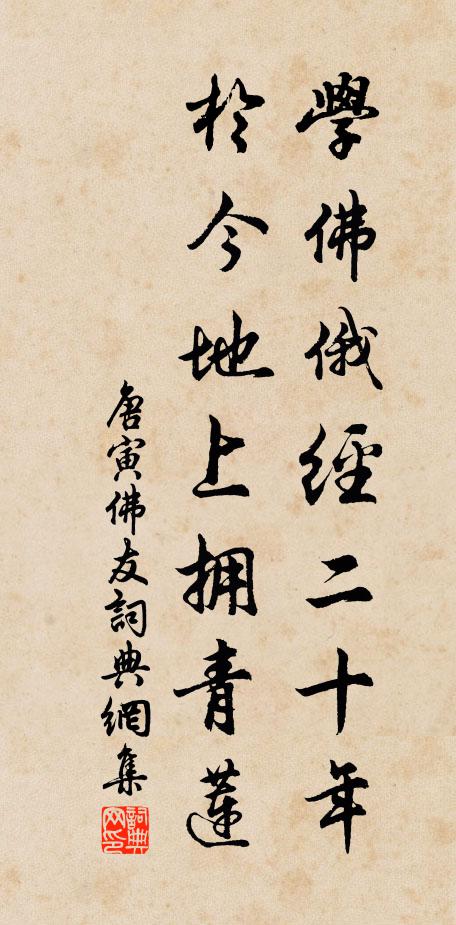 學佛俄經二十年
於今地上拥青蓮
唐寅佛友詞典網集
詞典网印